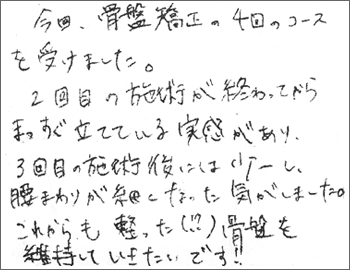 今回、骨盤矯正の4回のコース
を受けました。
2回目の施術が終わってから
まっすぐ立てている実感があり、
3回目の施術後には少ーし、
腰まわりが細くなった気がしました。
これからも軽った(!?)骨盤を
維持していきたいです!!